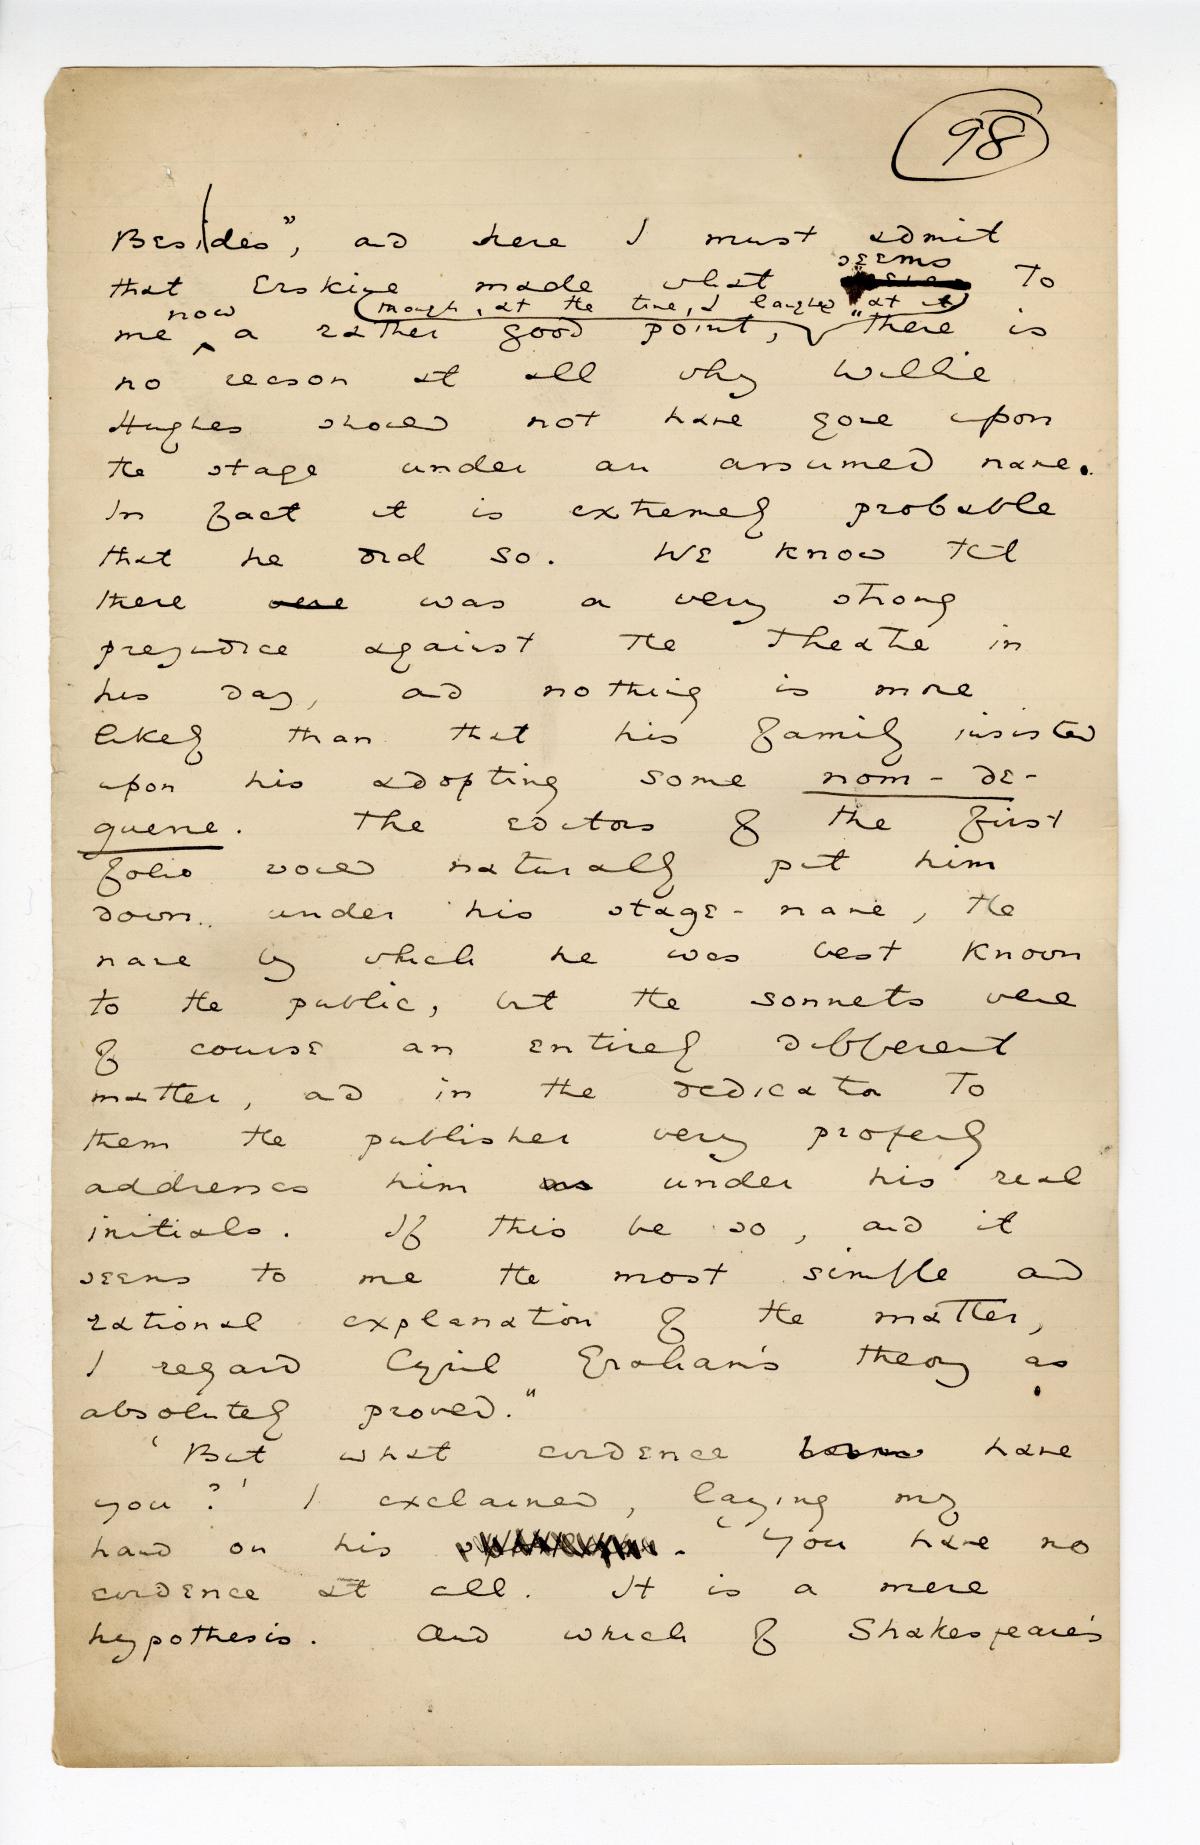 98
Besides", and here I must admit
seems
that Erskine made what to
now though, at the time, I laughed at it
me a rather good point, "there is
no reason at all why Willie
Hughes should not have gone upon
the stage under an assumed name.
In fact it is extremely probable
that he did so. We know that
there were was a very strong
prejudice against the theatre in
his day, and nothing is more
likely than that his family insisted
upon his adopting some nom-de-
guerre. The editors of the first
folio would naturally put him
down under his stage-name, the
name by which he was best known
to the public, but the sonnets were
of course an entirely different
matter, and in the dedication to
them the publisher very properly
addresses him as under his real
initials. If this be so, and it
seems to me the most simple and
rational explanation of the matter,
I regard Cyril Graham's theory as
absolutely proved."
'But what evidence have
you?' I exclaimed, laying my
hand on his . 'You have no
evidence at all. It is a mere
hypothesis. And which of Shakespeare's